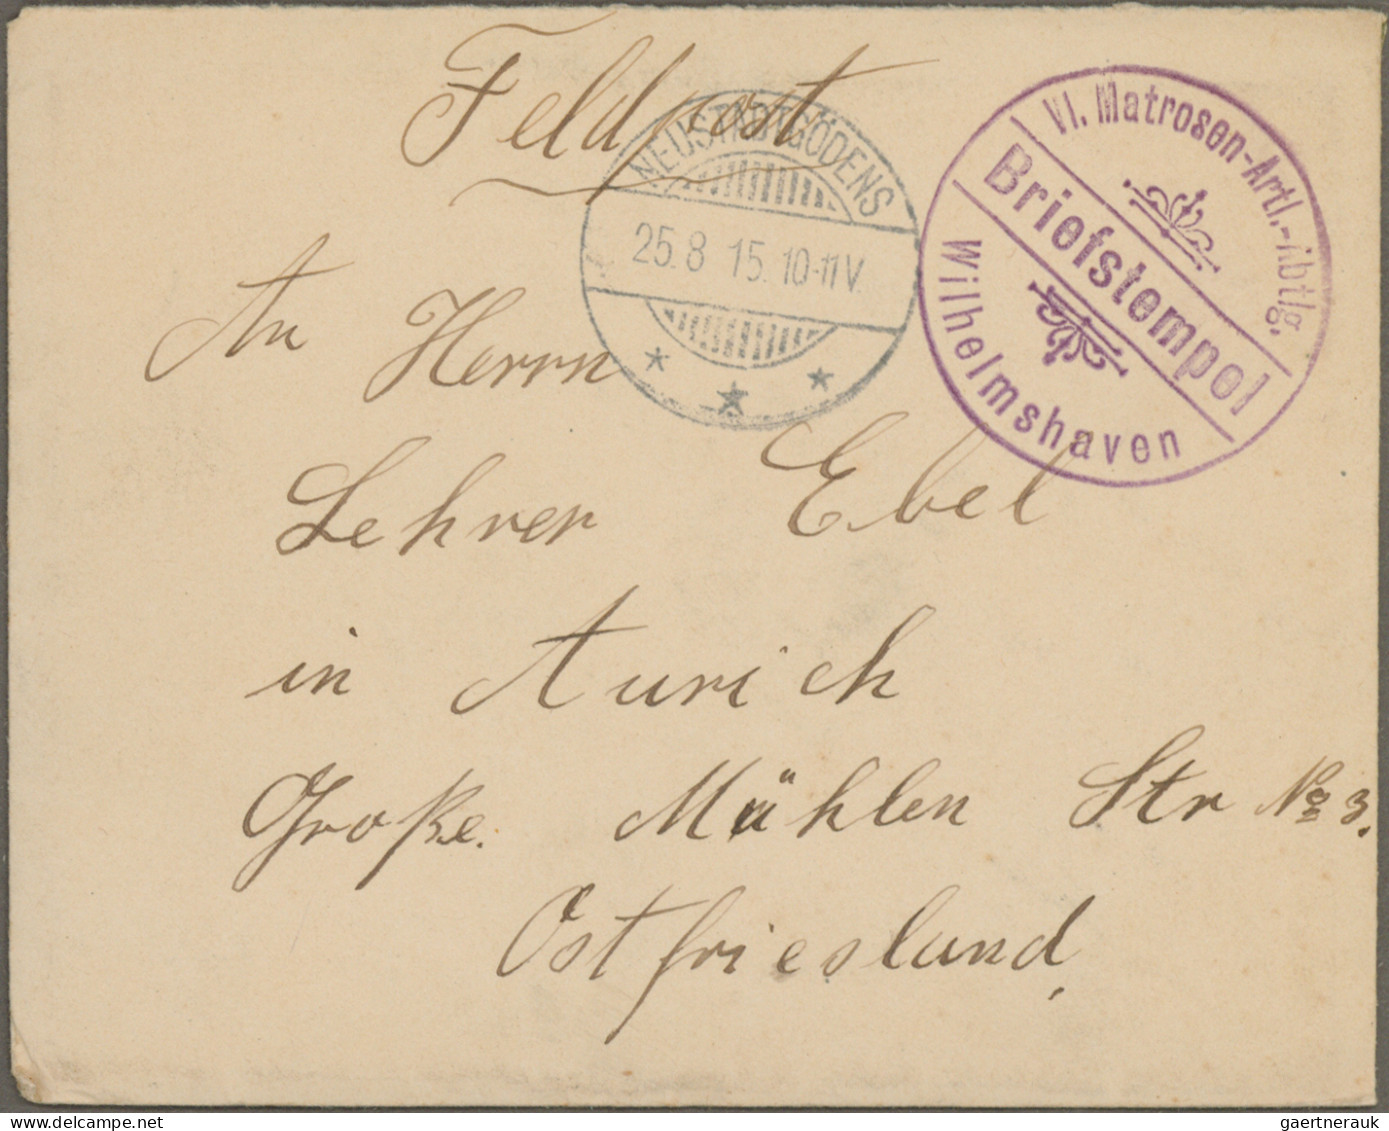 Feldpost
NEUSTADTGÖDENS
25.8 15. 10-11 V.
VI. Matrosen-Artl.-Abtlg.
Briefstempel
Wilhelmshaven
An Herrn
Lehrer Ebel
in Aurich
Große. Mühlen Str No 3.
Ostfriesland,
gaertnerauk